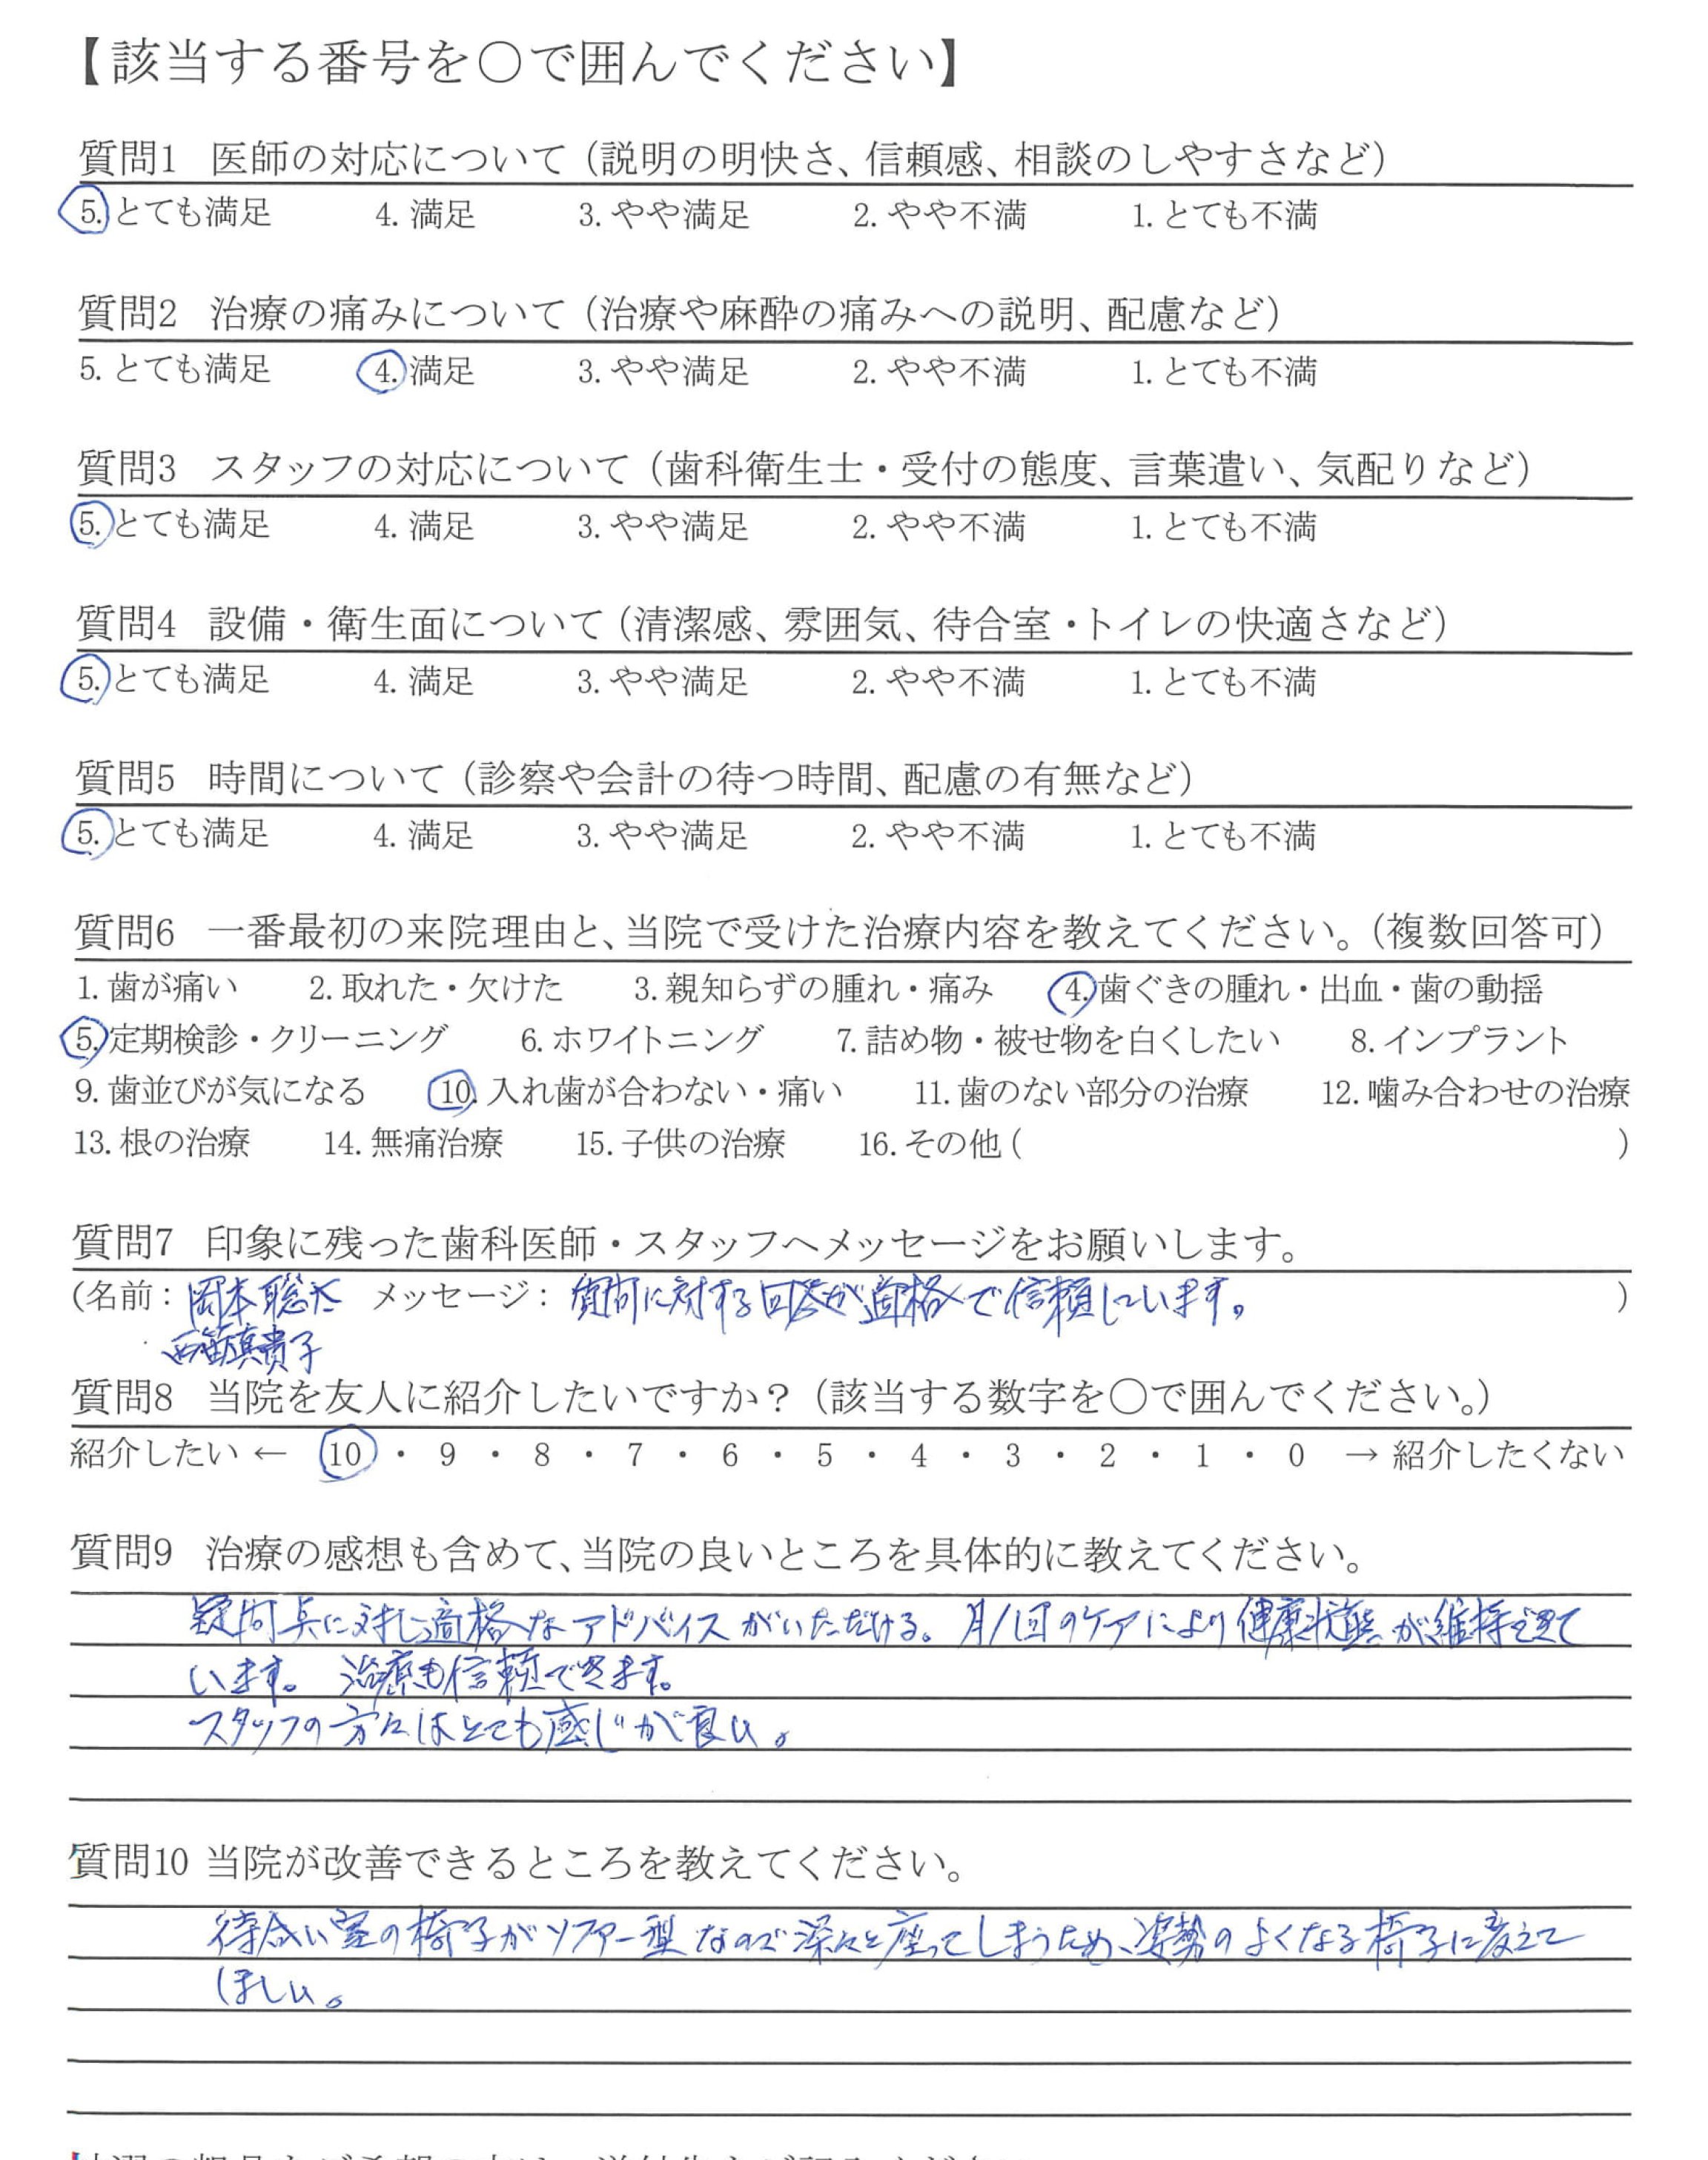 【該当する番号を○で囲んでください】
質問1 医師の対応について（説明の明快さ、信頼感、相談のしやすさなど）
5. とても満足 4. 満足 3. やや満足 2. やや不満 1. とても不満
質問2 治療の痛みについて（治療や麻酔の痛みへの説明、配慮など）
5. とても満足 4. 満足 3. やや満足 2. やや不満 1. とても不満
質問3 スタッフの対応について（歯科衛生士・受付の態度、言葉遣い、気配りなど）
5. とても満足 4. 満足 3. やや満足 2. やや不満 1. とても不満
質問4 設備・衛生面について（清潔感、雰囲気、待合室・トイレの快適さなど）
5. とても満足 4. 満足 3. やや満足 2. やや不満 1. とても不満
質問5 時間について（診察や会計の待つ時間、配慮の有無など）
5. とても満足 4. 満足 3. やや満足 2. やや不満 1. とても不満
質問6 一番最初の来院理由と、当院で受けた治療内容を教えてください。（複数回答可）
1. 歯が痛い 2. 取れた・欠けた 3. 親知らずの腫れ・痛み 4. 歯ぐきの腫れ・出血・歯の動揺
5. 定期検診・クリーニング 6. ホワイトニング 7. 詰め物・被せ物を白くしたい 8. インプラント
9. 歯並びが気になる 10. 入れ歯が合わない・痛い 11. 歯のない部分の治療 12. 噛み合わせの治療
13. 根の治療 14. 無痛治療 15. 子供の治療 16. その他（ ）
質問7 印象に残った歯科医師・スタッフへメッセージをお願いします。
（名前： 岡本聡太 メッセージ： 質問に対する回答が適格で信頼しています。 ）
真貴子
質問8 当院を友人に紹介したいですか？（該当する数字を○で囲んでください。）
紹介したい ← 10 ・ 9 ・ 8 ・ 7 ・ 6 ・ 5 ・ 4 ・ 3 ・ 2 ・ 1 ・ 0 → 紹介したくない
質問9 治療の感想も含めて、当院の良いところを具体的に教えてください。
疑問点に対し適格なアドバイスがいただける。月/1回のケアにより健康状態が維持できて
います。 治療も信頼できます。
スタッフの方々はとても感じが良い。
質問10 当院が改善できるところを教えてください。
待合い室の椅子がソファー型なので深々と座ってしまうため、姿勢のよくなる椅子に変えて
ほしい。